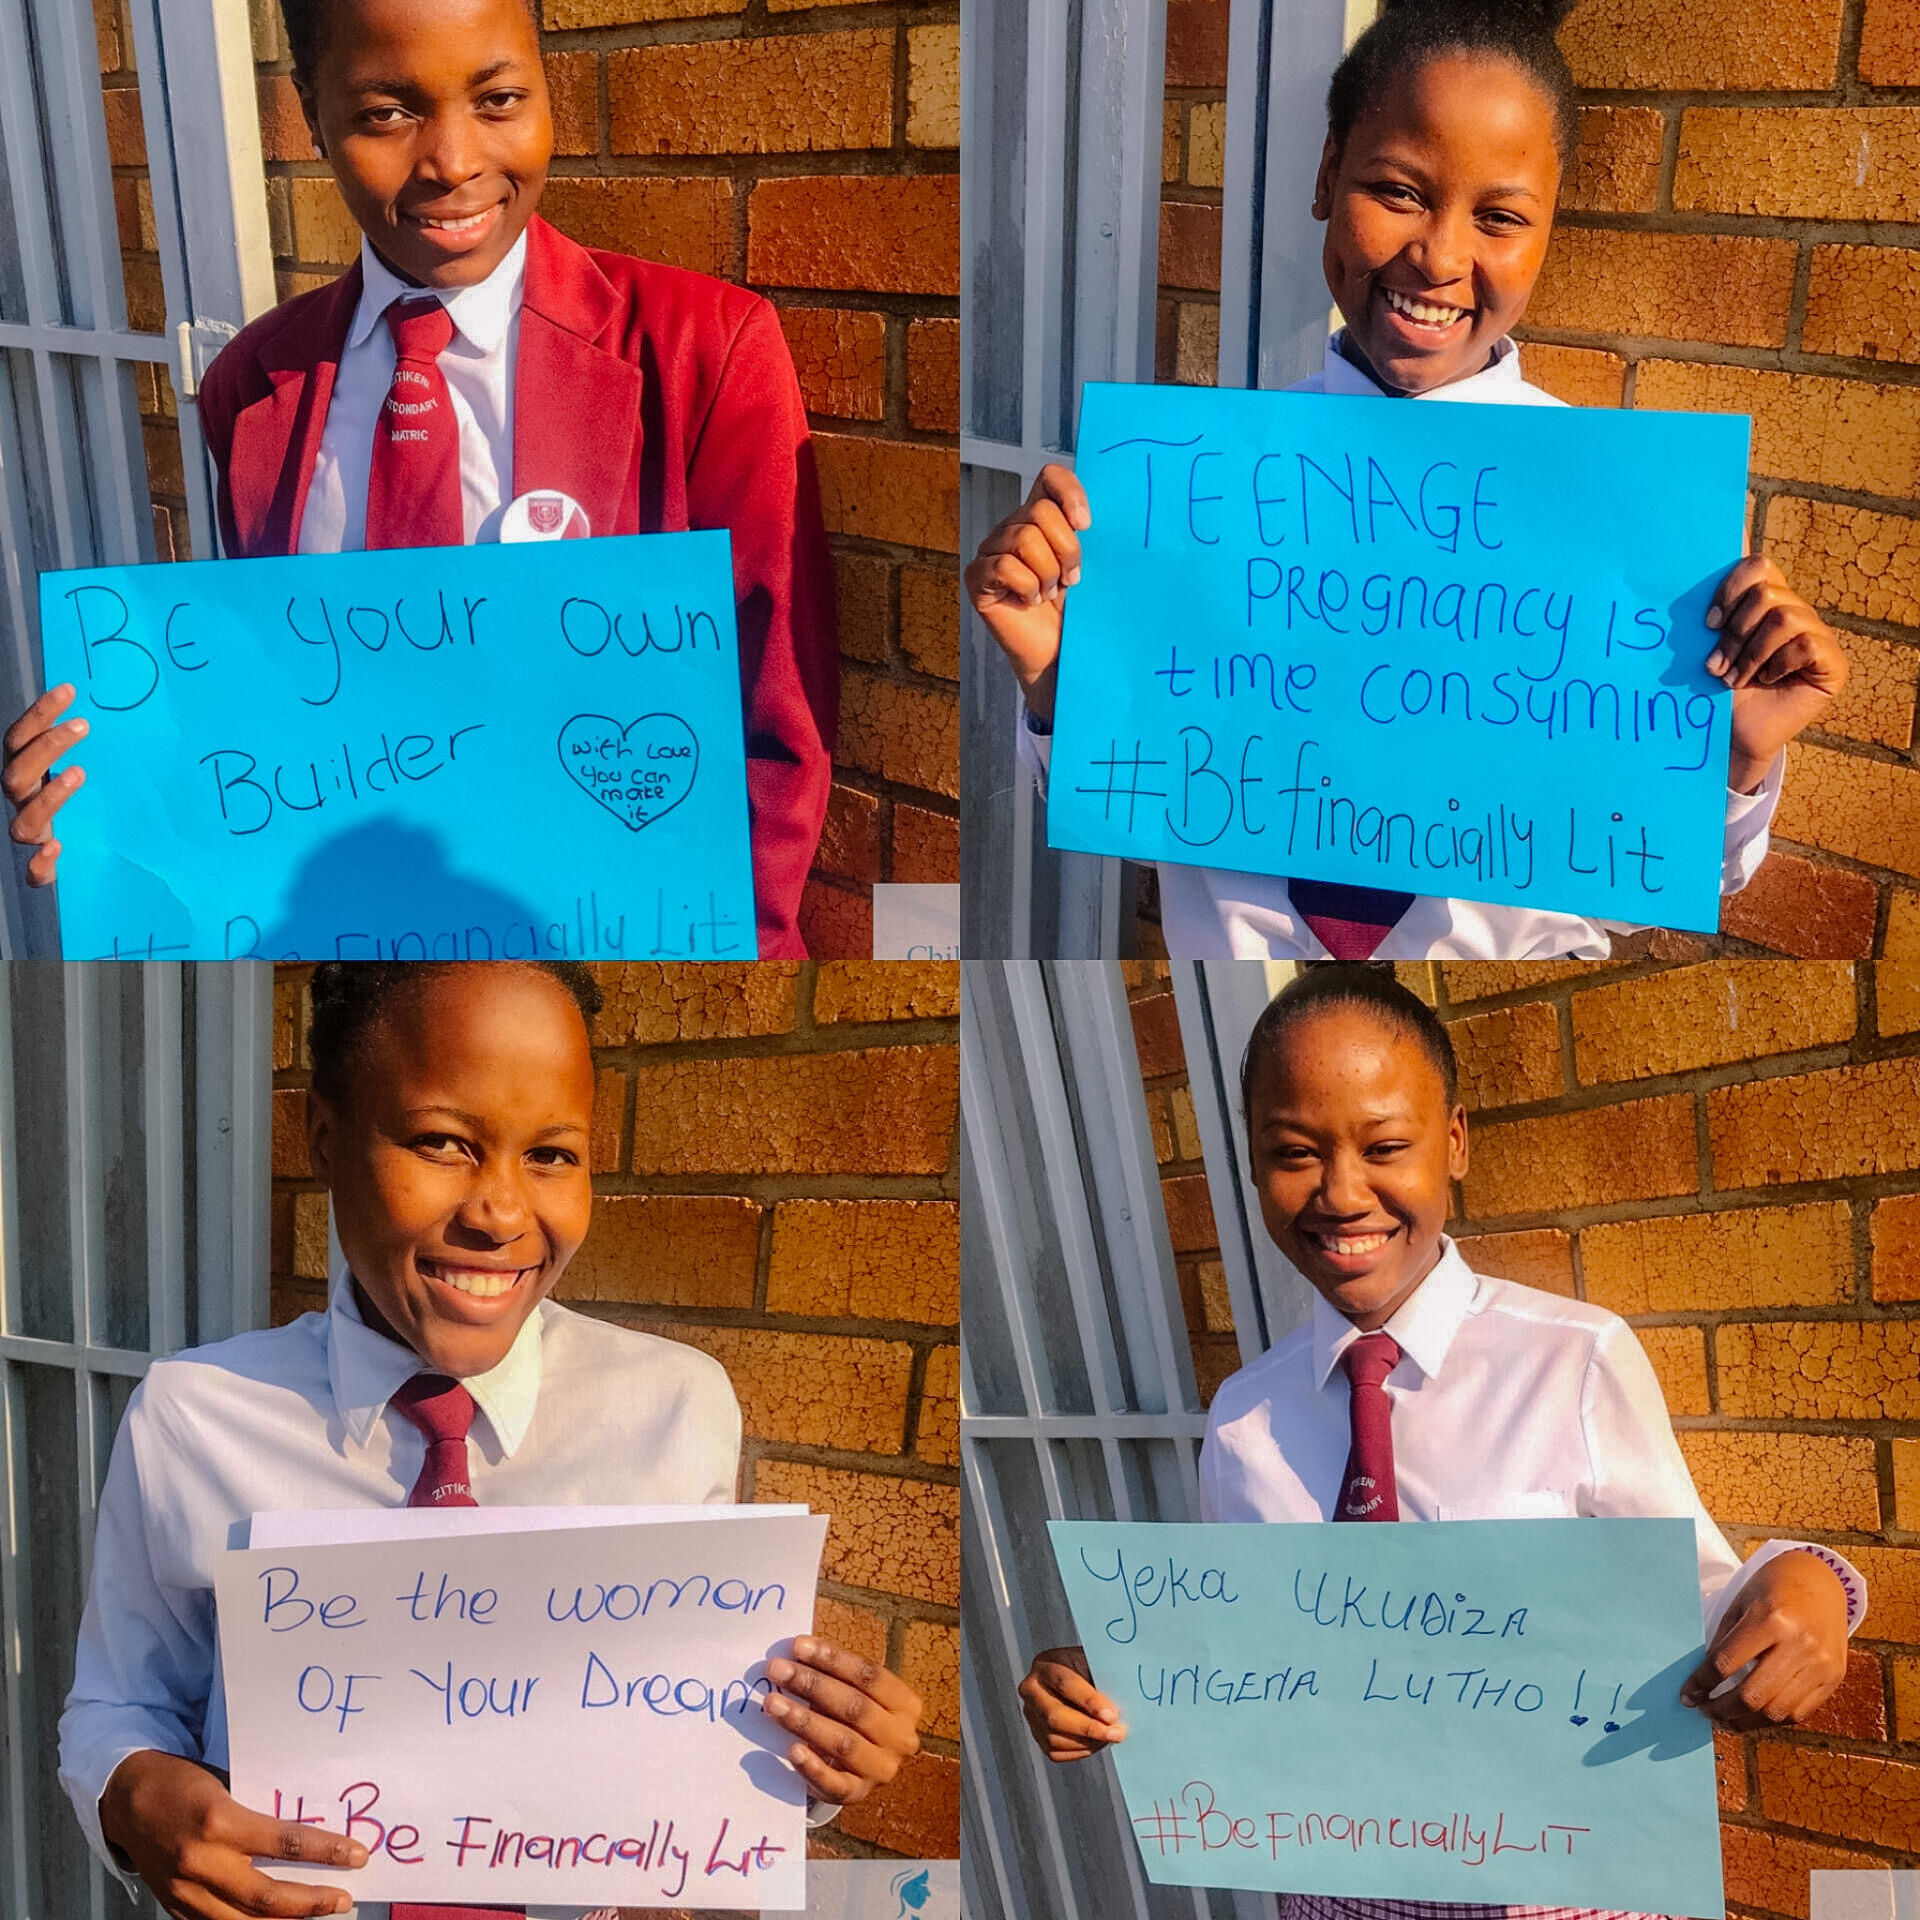 ZITIKENI
SECONDARY
MATRIC
BE your own
Builder
with Love
you can
make
it
# Be Financially Lit
Chil
TEENAGE
PREgnancy is
time consuming
#BEfinancially Lit
ZITIKE
Be the woman
OF Your Dream
#Be Financially Lit
TIKENI
SECONDARY
Yeka UKUDiZA
UNGENA LUTHO!!
#BeFinanciallyLIT